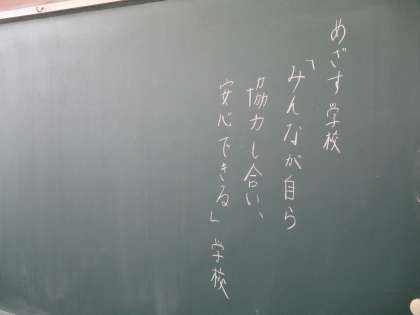 めざす学校
「みんなが自ら
協力し合い、
安心できる」学校